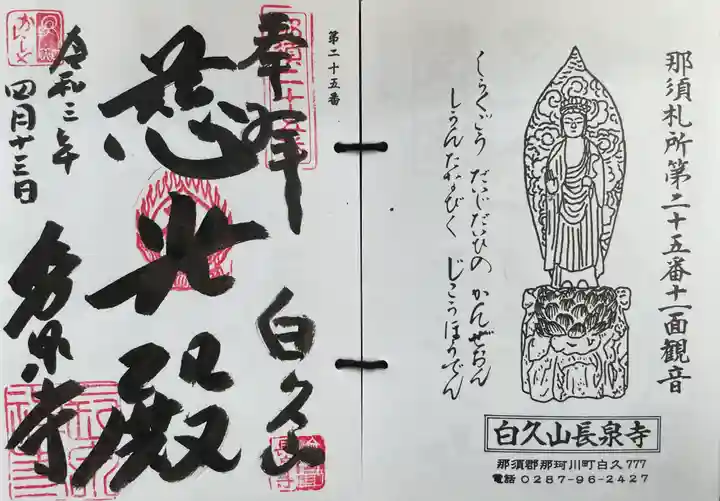 那須札所第二十五番十一面観音
しらくごう だいじだいひの かんぜおん
しうんたなびく じこうほうでん
白久山長泉寺
那須郡那珂川町白久777
電話 0287-96-2427
第二十五番
奉拝
白久山
慈光殿
長泉寺
令和三年
四月十三日